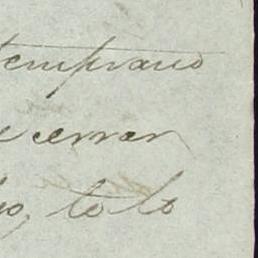 temprano
e cerrar
io, lo lo